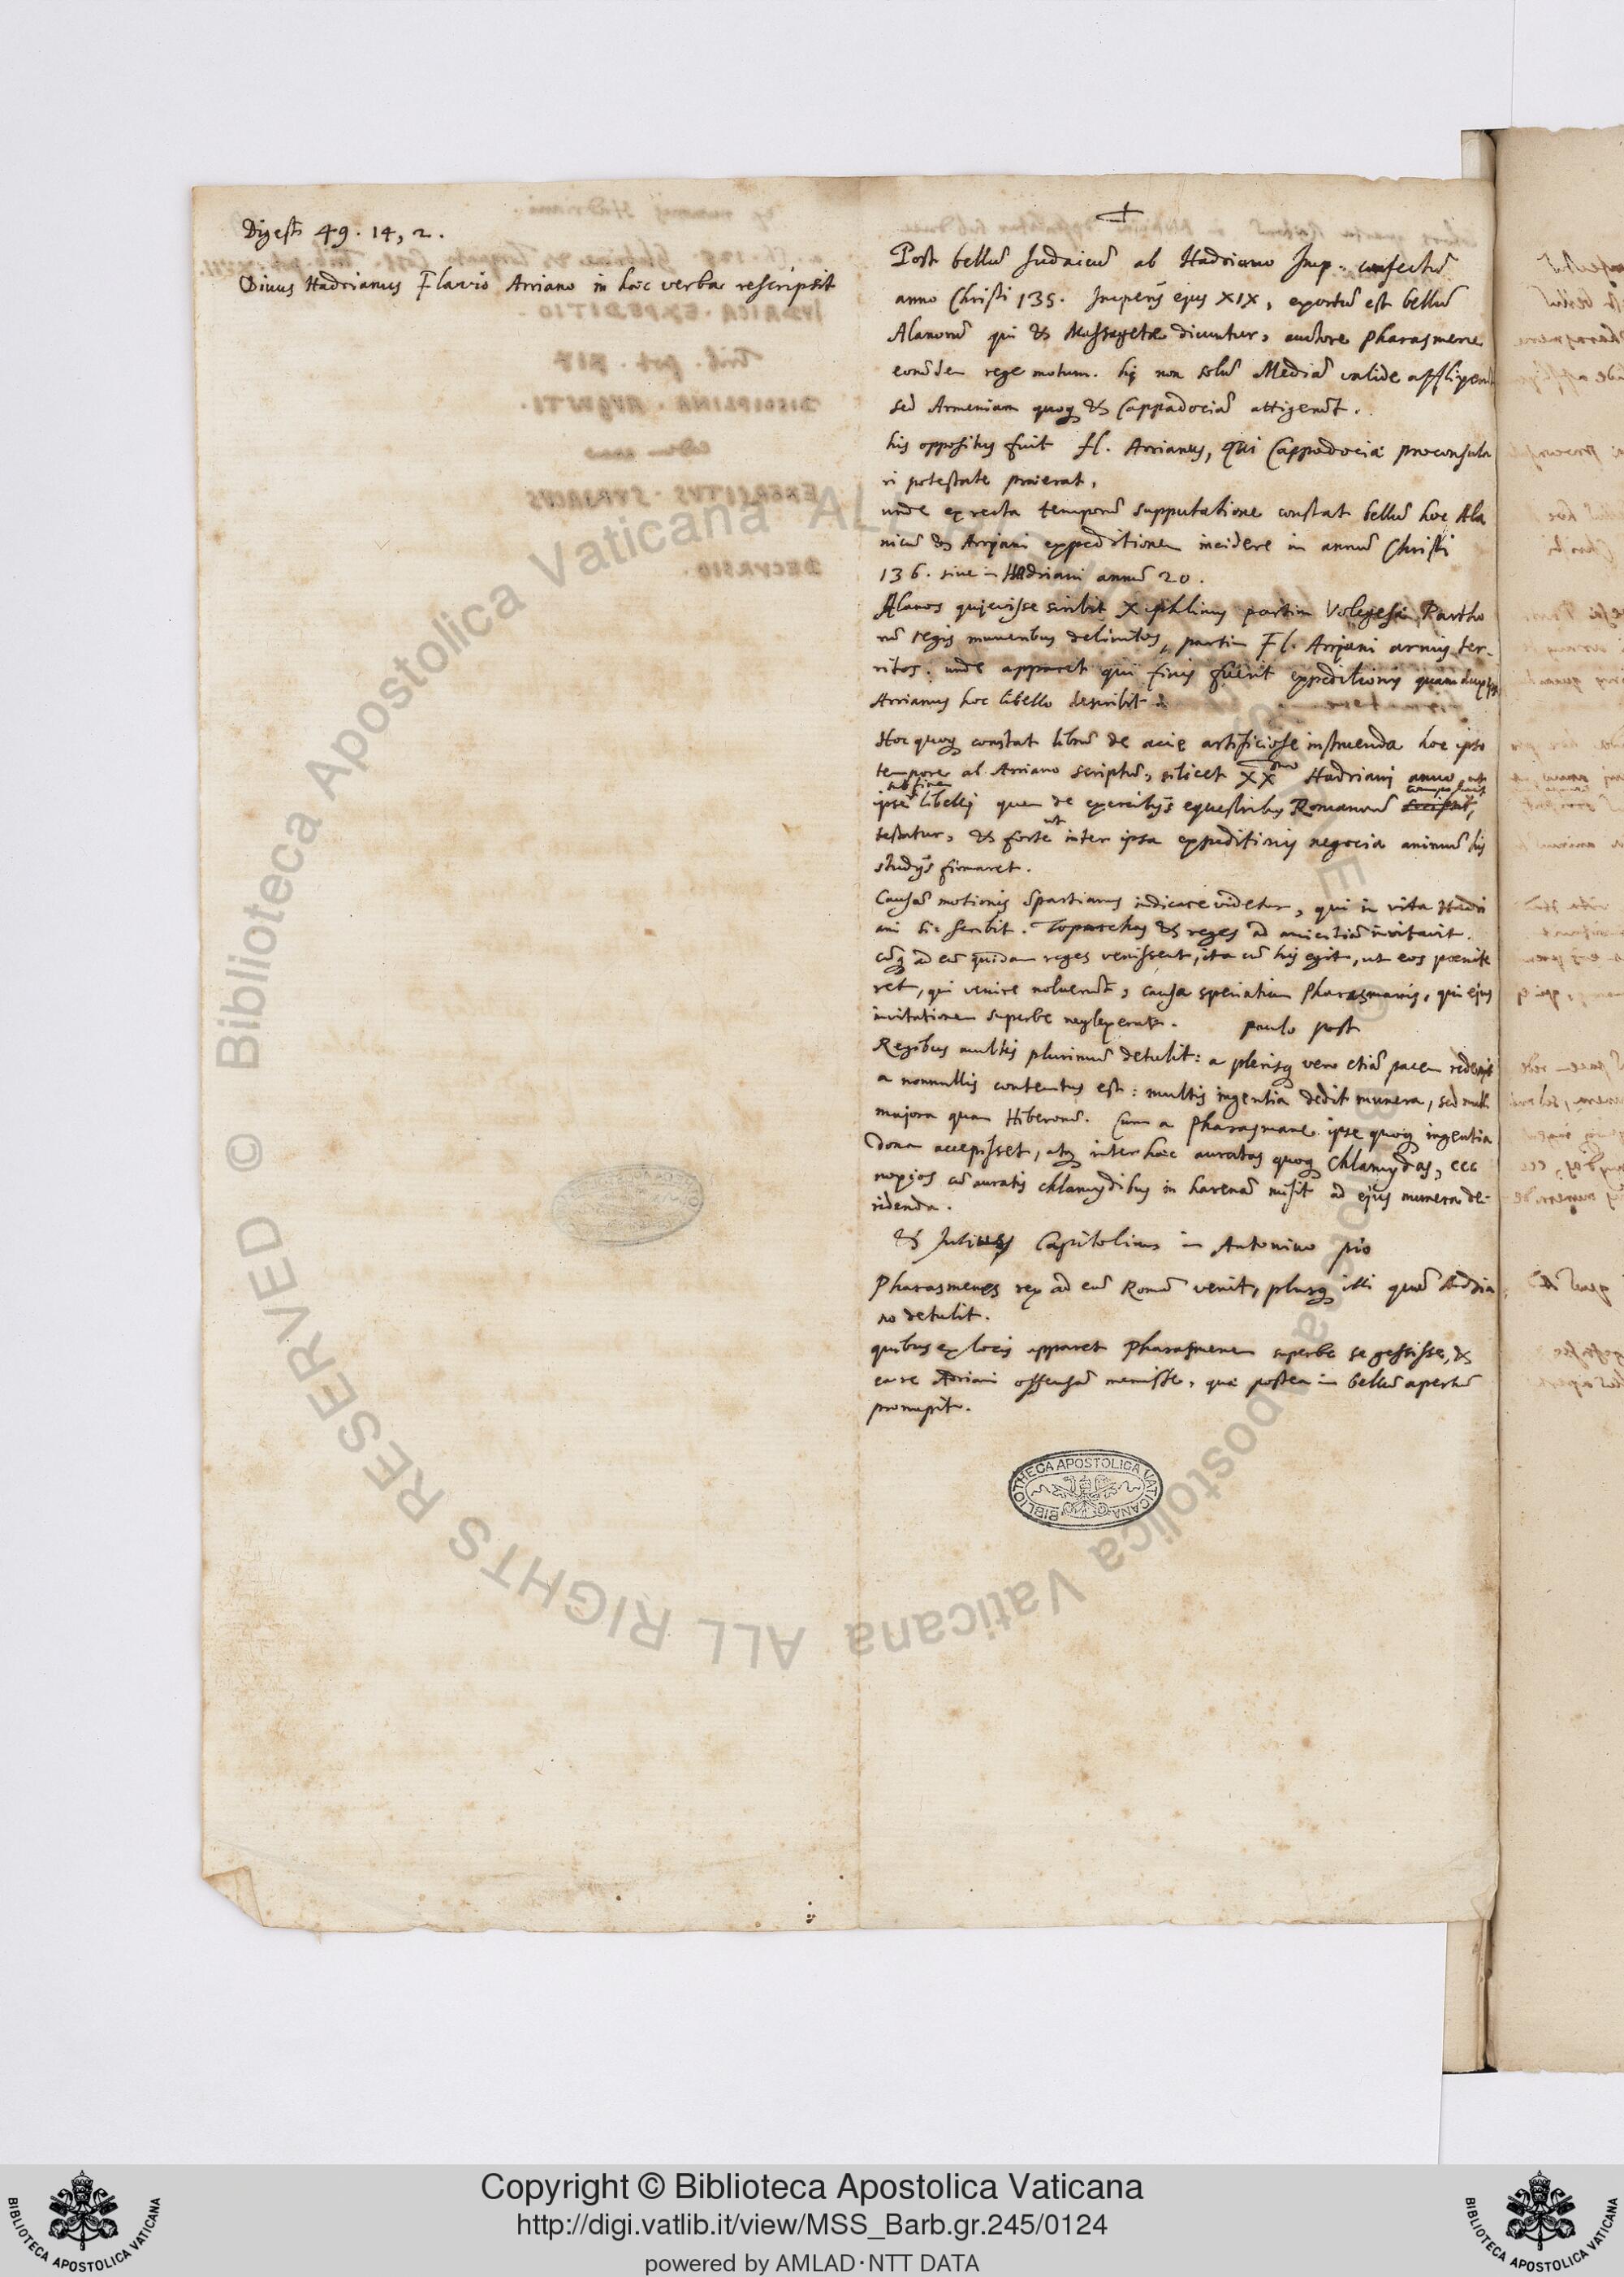 Digest 49. 14, 2.
Divus Hadrianus Flavio Arriano in hæc verba rescripsit
Post bellũ Judaicũ ab Hadriano Imp. confectũ
anno Christi 135. Imperij ejus XIX, exortũ est bellũ
Alanorũ qui & Massagetæ dicuntur, auctore Pharasmene
eorũdem rege motum. hi non solũ Mediã valide
sed Armeniam quoq & Cappadociã attigerũt.
his oppositus fuit fl. Arrianus, qui Cappadociæ proconsula
ri potestate præerat,
unde ex recta temporũ supputatione constat bellũ hoc Ala
nicũ & Arriani expeditionem incidere in annũ Christi
136. sive in Hadriani annũ 20.
Alanos quievisse scribit Xiphlinus partim Volegesi Partho
rũ regis muneribus delinitos, partim Fl. Arriani armis ter-
ritos. unde apparet qui finis fuerit expeditionis quam
Arrianus hoc libello describit
Hoc quoq constat librũ de acie artificiose instruenda hoc ipso
tempore ab Arriano scriptũ, scilicet XX Hadriani anno ut
sub finem
ipse libelli quem de exercitijs equestribus Romanorũ
testatur, & forte ut inter ipsa expeditionis negocia animũ his
studijs firmaret.
Causã motionis Spartianus indicare videtur, qui in vita Hadri
ani sic scribit. Toparchas & reges ad amicitiã invitavit.
cũq ad eũ quidam reges venissent, ita cũ his egit, ut eos pœnite
ret, qui venire noluerũt, causa speciatim Pharasmanis, qui ejus
invitationem superbe neglexerat. paulo post
Regibus multis plurimũ detulit: a plerisq vero etiã pacem redemit
a nonnullis contemtus est: multis ingentia dedit munera, sed nulli
majora quam Hiberorũ. Cum a Pharasmane ipse quoq ingentia
dona accepisset, atq inter hæc auratas quoq chlamydas, ccc
noxios cũ auratis chlamydibus in harenã misit ad ejus munera de-
ridenda.
& Julius Capitolinus in Antonino pio
Pharasmenes rex ad eũ Romã venit, plusq illi quã Hadria
no detulit.
quibus ex locis apparet Pharasmenem superbe se gessisse, &
ea re Adriani offensã meruisse, quæ postea in bellũ apertũ
prorupit.
BIBLIOTHECA APOSTOLICA VATICANA
© Biblioteca Apostolica Vaticana ALL RIGHTS RESERVED
Copyright © Biblioteca Apostolica Vaticana
http://digi.vatlib.it/view/MSS_Barb.gr.245/0124
powered by AMLAD·NTT DATA
BIBLIOTECA APOSTOLICA VATICANA
BIBLIOTECA APOSTOLICA VATICANA